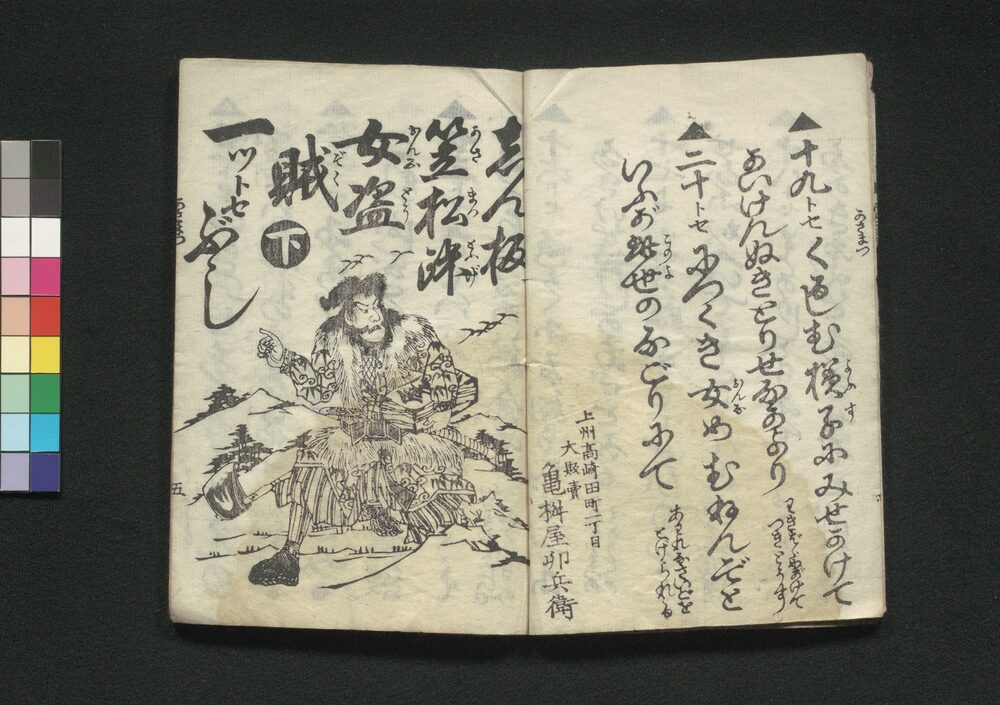 かさまつ
▲十九トセ くやしむ様子にみせかけて
ようす
あいけんぬきとりせなかより
わきばらかけて
つきとうす
▲二十トセ につくき女めむねんぞと
おんな
いふが此世のなごりにて
このよ
あはれなさいごを
とげられる
上州高崎田町一丁目
大販賣
亀桝屋卯兵衛
志ん板
笠松峠
かさまつとふげ
女盗
おんなとう
賊 下
ぞく
一ツトセ
ぶし
かさまつ
五